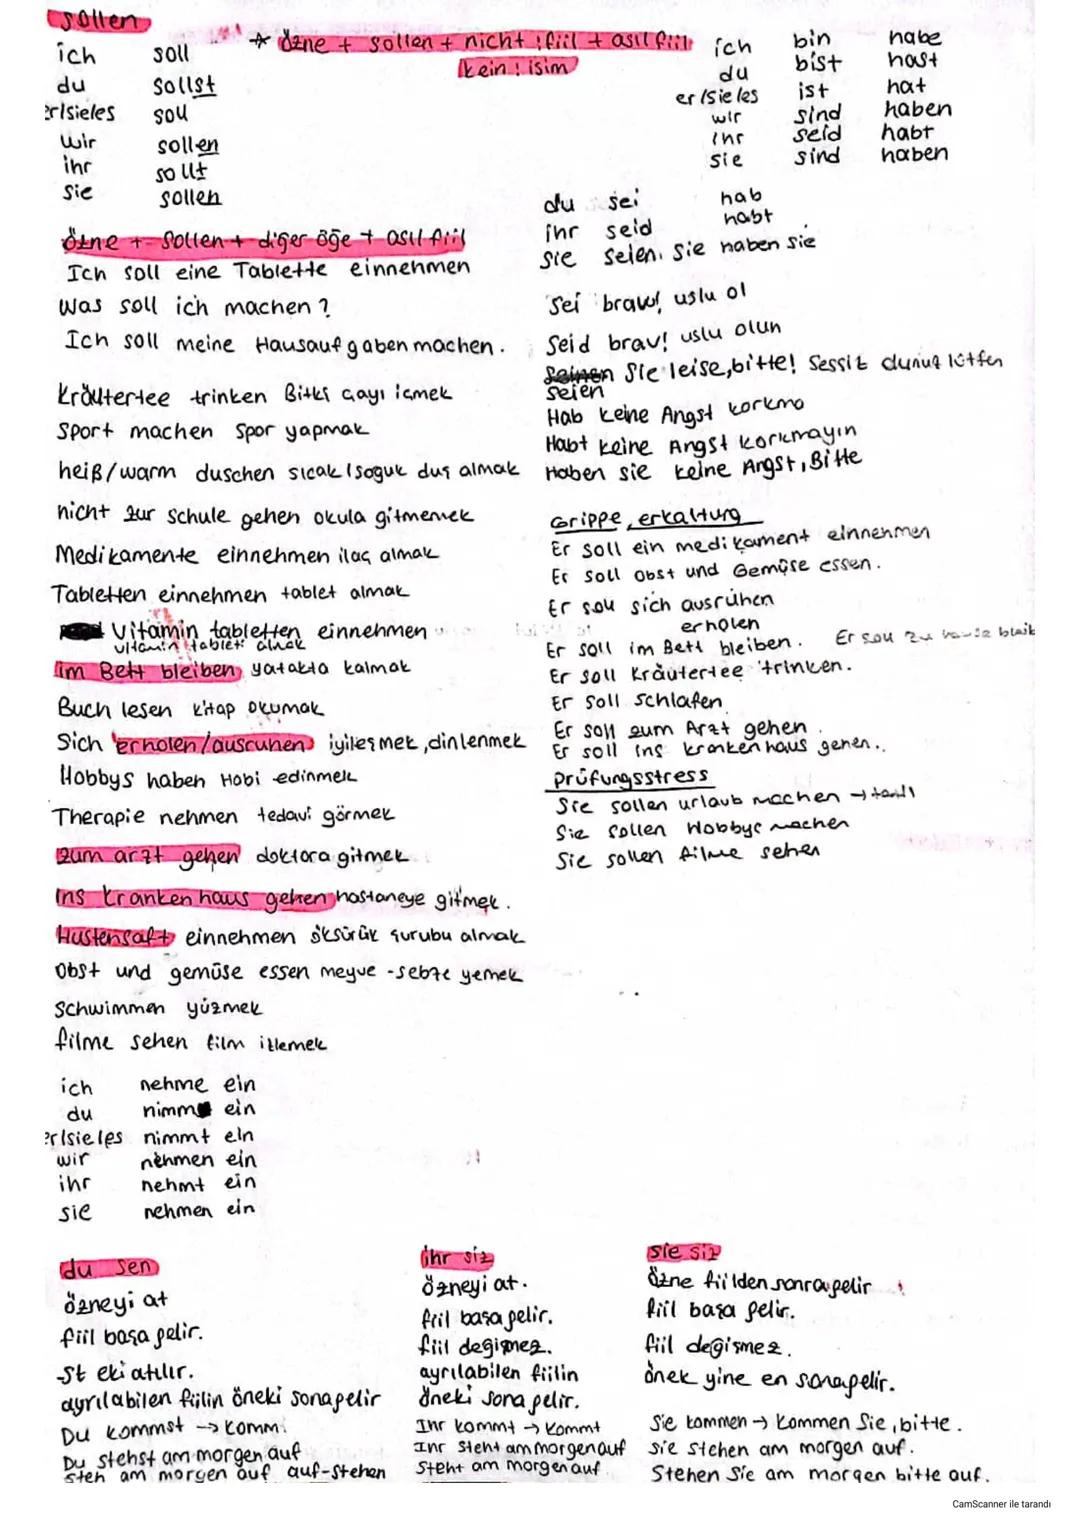 sollen
ich soll
du sollst
er/sie/es soll
wir sollen
ihr sollt
sie sollen
* Özne + sollen + nicht : fiil + asıl fiil
kein : isim
ich bin habe
du bist hast
er/sie/es ist hat
wir sind haben
ihr seid habt
sie sind haben
du sei hab
ihr seid habt
sie seien sie haben sie
özne + sollen + diğer öğe + asıl fiil
Ich soll eine Tablette einnehmen
Was soll ich machen?
Ich soll meine Hausaufgaben machen.
Kräutertee trinken Bitki çayı içmek
Sport machen Spor yapmak
heiß/warm duschen sıcak/soğuk duş almak
nicht zur schule gehen okula gitmemek
Medikamente einnehmen ilaç almak
Tabletten einnehmen tablet almak
Vitamin tabletten einnehmen
vitamin tableti almak
im Bett bleiben yatakta kalmak
Buch lesen kitap okumak
Sich erholen/ausruhen iyileşmek, dinlenmek
Hobbys haben Hobi edinmek
Therapie nehmen tedavi görmek
zum arzt gehen doktora gitmek
ins krankenhaus gehen hastaneye gitmek.
Hustensaft einnehmen öksürük şurubu almak
Obst und gemüse essen meyve-sebze yemek
Schwimmen yüzmek
filme sehen film izlemek
Sei brav! uslu ol
Seid brav! uslu olun
Sie leise, bitte! Sessiz durun lütfen
seien
Hab keine Angst korkma
Habt keine Angst korkmayın
Haben sie keine Angst, Bitte
Grippe, erkaltung
Er soll ein medikament einnehmen
Er soll obst und Gemüse essen.
Er soll sich ausrühen
erholen
Er soll im Bett bleiben. Er soll zu hause bleib
Er soll Kräutertee trinken.
Er soll schlafen
Er soll zum Arzt gehen.
Er soll ins krankenhaus gehen.
Prüfungsstress
Sie sollen urlaub machen → tatil
Sie sollen Hobbys machen
Sie sollen filme sehen
ich nehme ein
du nimm ein
er/sie/es nimmt ein
wir nehmen ein
ihr nehmt ein
sie nehmen ein
du sen
özneyi at
fiil başa gelir.
-st eki atılır.
ayrılabilen fiilin öneki sona gelir
Du kommst → komm.
Du stehst am morgen auf
steh am morgen auf auf-stehen
ihr siz
özneyi at.
fiil başa gelir.
fiil değişmez.
ayrılabilen fiilin
öneki sona gelir.
Ihr kommt → kommt
Ihr steht am morgen auf
Steht am morgen auf
Sie siz
Özne fiilden sonra gelir
fiil başa gelir.
fiil değişmez.
önek yine en sona gelir.
Sie kommen → Kommen Sie, bitte.
Sie stehen am morgen auf.
Stehen Sie am morgen bitte auf.
CamScanner ile tarandı